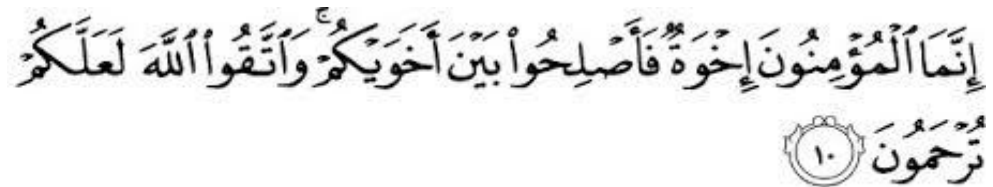 إِنَّمَا ٱلْمُؤْمِنُونَ إِخْوَةٌ فَأَصْلِحُوا۟ بَيْنَ أَخَوَيْكُمْ ۚ وَٱتَّقُوا۟ ٱللَّهَ لَعَلَّكُمْ
تُرْحَمُونَ ١٠